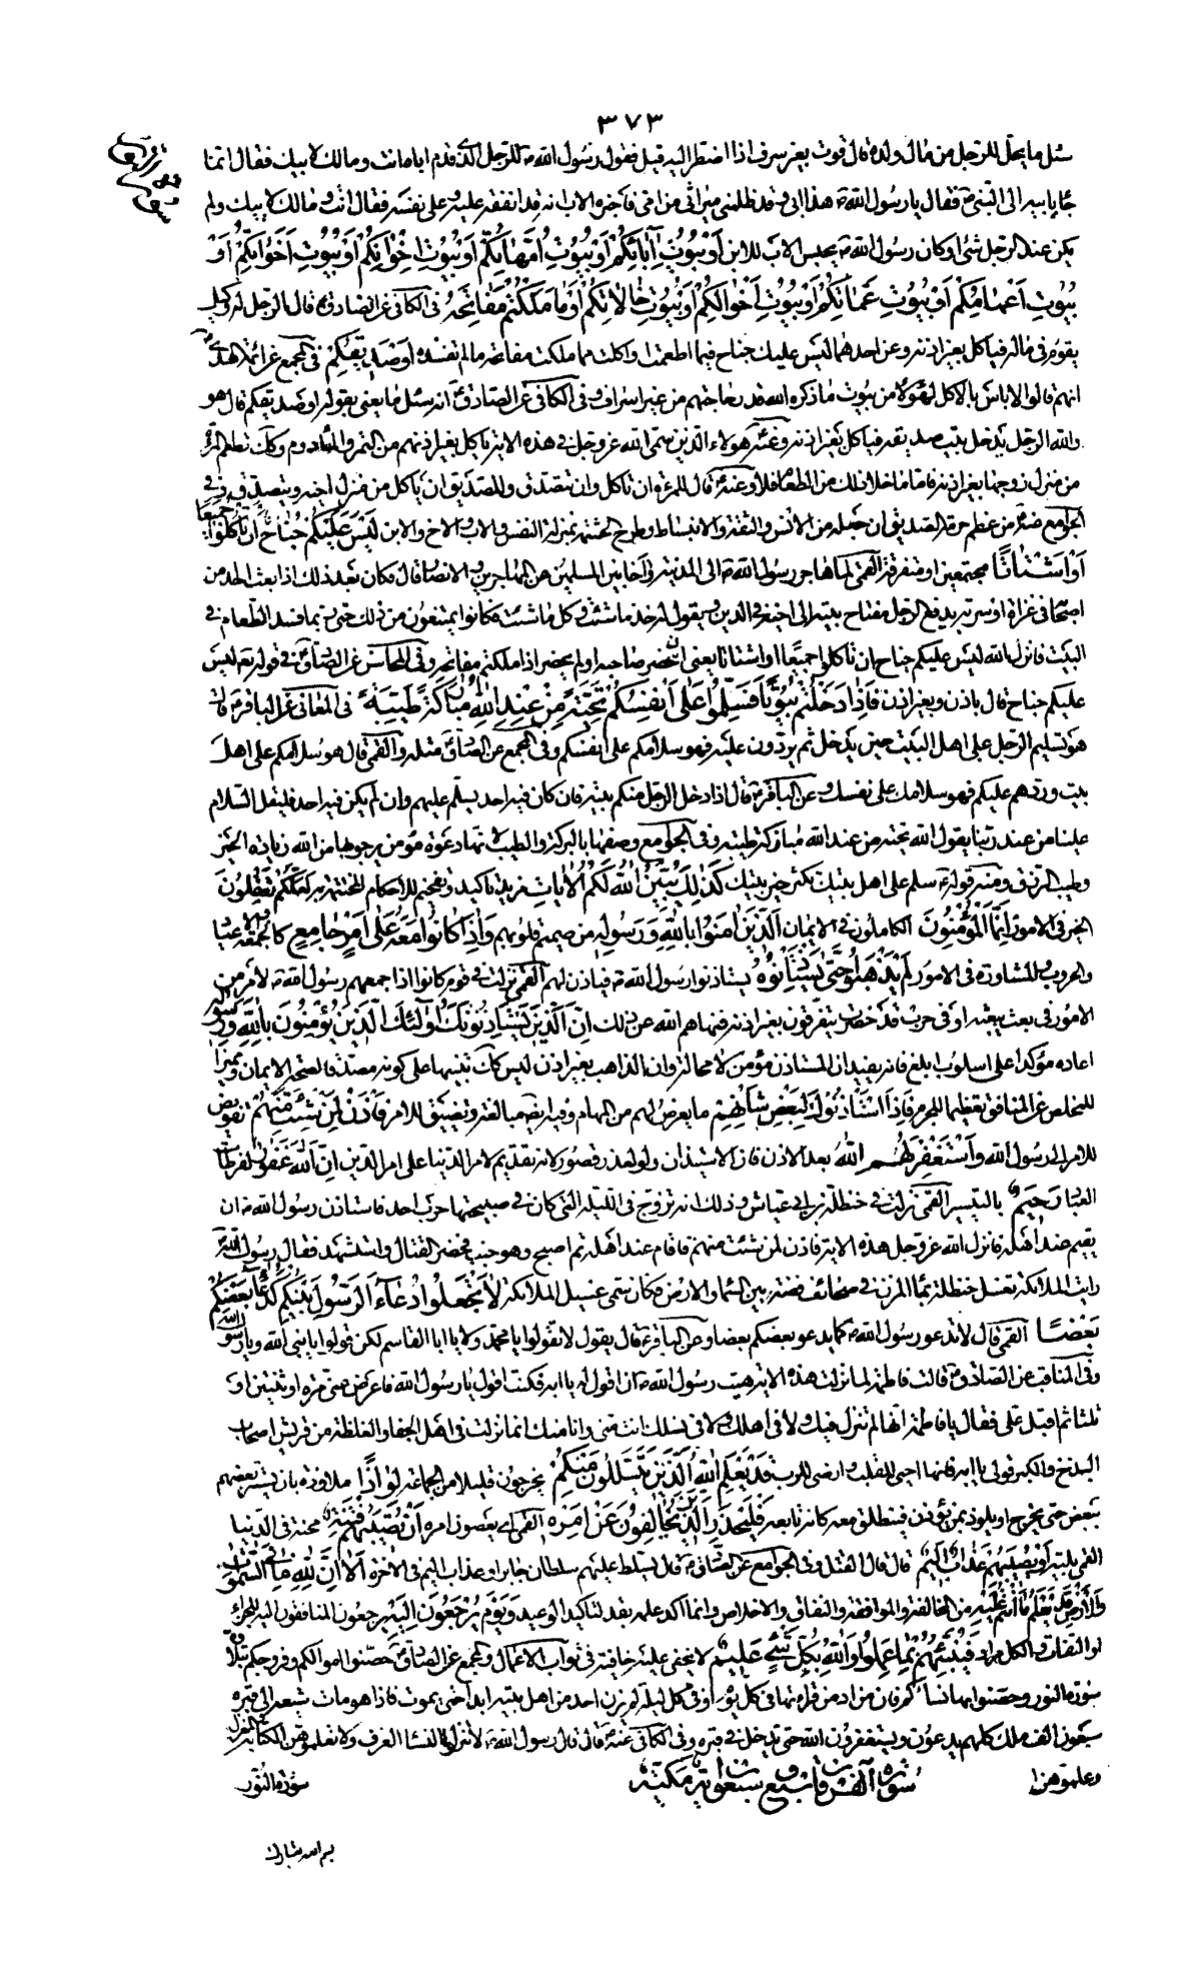 ٣٧٣
سئل ما يحل للرجل من مال ولده قال قوت بغير سرف اذا اضطر اليه قيل فقول رسول الله ص للرجل الذى قدم اباه انت ومالك لابيك فقال انما
جاء بابيه الى النبى ص فقال يا رسول الله ص هذا ابى وقد ظلمنى ميراثى من امى فاخبره الاب انه قد انفقه عليه وعلى نفسه فقال انت ومالك لابيك ولم
يكن عند الرجل شئ او كان رسول الله ص يحبس الاب للابن أَوْ بُيُوتِ آبَائِكُمْ أَوْ بُيُوتِ أُمَّهَاتِكُمْ أَوْ بُيُوتِ إِخْوَانِكُمْ أَوْ بُيُوتِ أَخَوَاتِكُمْ أَوْ
بُيُوتِ أَعْمَامِكُمْ أَوْ بُيُوتِ عَمَّاتِكُمْ أَوْ بُيُوتِ أَخْوَالِكُمْ أَوْ بُيُوتِ خَالَاتِكُمْ أَوْ مَا مَلَكْتُمْ مَفَاتِحَهُ فى الكافى عن الصادق ع قال الرجل له وكيل
يقوم فى ماله فيأكل بغير اذنه وعن احدهما ليس عليك جناح فيما اطعمت او اكلت مما ملكت مفاتحه ما لم تفسده أَوْ صَدِيقِكُمْ فى المجمع عن ائمة الهدى
انهم قالوا لا باس بالاكل لهؤلاء من بيوت ما ذكره الله قدر حاجتهم من غير اسراف وفى الكافى عن الصادق ع انه سئل ما يعنى بقوله او صديقكم قال هو
والله الرجل يدخل بيت صديقه فياكل بغير اذنه وعنه هؤلاء الذين سمى الله عز وجل فى هذه الاية ياكل بغير اذنهم من التمر والمادوم وكك تطعم المرئة
من منزل زوجها بغير اذنه فاما ما خلا ذلك من الطعام فلا وعنه قال للمرءة ان تاكل وان تتصدق وللصديق ان ياكل من منزل اخيه ويتصدق وفى
الجوامع عنه ع من عظم حرمة الصديق ان جعله من الانس والثقة والانبساط وطرح الحشمة بمنزلة النفس والاب والاخ والابن لَيْسَ عَلَيْكُمْ جُنَاحٌ أَنْ تَأْكُلُوا جَمِيعًا
أَوْ أَشْتَاتًا مجتمعين او متفرقين القمى لما هاجر رسول الله ص الى المدينة واخا بين المسلمين من المهاجرين والانصار قال فكان بعد ذلك اذا بعث احدا من
اصحابه فى غزاة او سرية يدفع الرجل مفتاح بيته الى اخيه فى الدين ويقول له خذ ما شئت وكل ما شئت فكانوا يمتنعون من ذلك حتى ربما فسد الطعام فى
البيت فانزل الله ليس عليكم جناح ان تاكلوا جميعا او اشتاتا يعنى ان حضر صاحبه او لم يحضر اذا ملكتم مفاتحه وفى المحاسن عن الصادق ع فى قوله تع ليس
عليكم جناح قال باذن وبغير اذن فَإِذَا دَخَلْتُمْ بُيُوتًا فَسَلِّمُوا عَلَى أَنْفُسِكُمْ تَحِيَّةً مِنْ عِنْدِ اللَّهِ مُبَارَكَةً طَيِّبَةً فى المعانى عن الباقر ع قال
هو تسليم الرجل على اهل البيت حين يدخل ثم يردون عليه فهو سلامكم على انفسكم وفى المجمع عن الصادق ع مثله والقمى قال هو سلامكم على اهل
بيت وردهم عليكم فهو سلامك على نفسك وعن الباقر ع قال اذا دخل الرجل منكم بيته فان كان فيه احد يسلم عليهم وان لم يكن فيه احد فليقل السلام
علينا من عند ربنا يقول الله تحية من عند الله مباركة طيبة وفى الجوامع وصفها بالبركة والطيب لانها دعوة مؤمن يرجو بها من الله زيادة الخير
وطيب الرزق ومنه قوله ع سلم على اهل بيتك يكثر خير بيتك كَذَلِكَ يُبَيِّنُ اللَّهُ لَكُمُ الْآيَاتِ مزيد تاكيد وتفخيم للاحكام المختتمة به لَعَلَّكُمْ تَعْقِلُونَ
الخير فى الامور إِنَّمَا الْمُؤْمِنُونَ الكاملون فى الايمان الَّذِينَ آمَنُوا بِاللَّهِ وَرَسُولِهِ من صميم قلوبهم وَإِذَا كَانُوا مَعَهُ عَلَى أَمْرٍ جَامِعٍ كالجمعة والاعياد
والحروب والمشاورة فى الامور لَمْ يَذْهَبُوا حَتَّى يَسْتَأْذِنُوهُ يستاذنوا رسول الله ص فياذن لهم القمى نزلت فى قوم كانوا اذا جمعهم رسول الله ص لامر من
الامور فى بعث يبعثه او فى حرب قد حضرت يتفرقون بغير اذنه فنهاهم الله عن ذلك إِنَّ الَّذِينَ يَسْتَأْذِنُونَكَ أُولَئِكَ الَّذِينَ يُؤْمِنُونَ بِاللَّهِ وَرَسُولِهِ
اعاده مؤكدا على اسلوب ابلغ فانه يفيد ان المستاذن مؤمن لا محالة وان الذاهب بغير اذن ليس كك تنبيها على كونه مصدقا لصحة الايمان ومميزا
للمخلص عن المنافق وتعظيما للجرم فَإِذَا اسْتَأْذَنُوكَ لِبَعْضِ شَأْنِهِمْ ما يعرض لهم من المهام وفيه ايضا مبالغة وتضييق للامر فَأْذَنْ لِمَنْ شِئْتَ مِنْهُمْ تفويض
للامر الى رسول الله وَاسْتَغْفِرْ لَهُمُ اللَّهَ بعد الاذن فان الاستيذان ولو لعذر قصور لانه تقديم لامر الدنيا على امر الدين إِنَّ اللَّهَ غَفُورٌ لفرطات
العباد رَحِيمٌ بالتيسير القمى نزلت فى حنظلة بن ابى عياش وذلك انه تزوج فى الليلة التى كان فى صبيحتها حرب احد فاستاذن رسول الله ص ان
يقيم عند اهله فانزل الله عز وجل هذه الاية فاذن لمن شئت منهم فاقام عند اهله ثم اصبح وهو جنب فحضر القتال واستشهد فقال رسول الله ص
رايت الملائكة تغسل حنظلة بماء المزن فى صحائف فضة بين السماء والارض فكان سمى غسيل الملائكة لَا تَجْعَلُوا دُعَاءَ الرَّسُولِ بَيْنَكُمْ كَدُعَاءِ بَعْضِكُمْ
بَعْضًا القمى قال لا تدعو رسول الله ص كما يدعو بعضكم بعضا وعن الباقر ع قال يقول لا تقولوا يا محمد ولا يا ابا القاسم لكن قولوا يا نبى الله ويا رسول الله
وفى المناقب عن الصادق ع قالت فاطمة لما نزلت هذه الاية هبت رسول الله ص ان اقول له يا ابه فكنت اقول يا رسول الله فاعرض عنى مرة او ثنتين او
ثلثا ثم اقبل على فقال يا فاطمة انها لم تنزل فيك ولا فى اهلك ولا فى نسلك انت منى وانا منك انما نزلت فى اهل الجفاء والغلظة من قريش اصحاب
البذخ والكبر قولى يا ابه فانها احيى للقلب وارضى للرب قَدْ يَعْلَمُ اللَّهُ الَّذِينَ يَتَسَلَّلُونَ مِنْكُمْ يخرجون قليلا من الجماعة لِوَاذًا ملاوذة بان يستتر بعضهم
ببعض حتى يخرج او يلوذ بمن يؤذن فينطلق معه كانه تابعه فَلْيَحْذَرِ الَّذِينَ يُخَالِفُونَ عَنْ أَمْرِهِ القمى اى يعصون امره أَنْ تُصِيبَهُمْ فِتْنَةٌ محنة فى الدنيا
القمى بلية أَوْ يُصِيبَهُمْ عَذَابٌ أَلِيمٌ قال قال القتل وفى الجوامع عن الصادق ع قال يسلط عليهم سلطان جابر او عذاب اليم فى الاخرة أَلَا إِنَّ لِلَّهِ مَا فِي السَّمَاوَاتِ
وَالْأَرْضِ قَدْ يَعْلَمُ مَا أَنْتُمْ عَلَيْهِ من المخالفة والموافقة والنفاق والاخلاص وانما اكد علمه بقد لتاكيد الوعيد وَيَوْمَ يُرْجَعُونَ إِلَيْهِ يرجعون المنافقون اليه للجزاء
او التفات والكل مراد فَيُنَبِّئُهُمْ بِمَا عَمِلُوا وَاللَّهُ بِكُلِّ شَيْءٍ عَلِيمٌ لا يخفى عليه خافية فى ثواب الاعمال والمجمع عن الصادق ع حصنوا اموالكم وفروجكم بتلاوة
سورة النور وحصنوا بها نساءكم فان من ادمن قراءتها فى كل يوم او فى كل ليلة لم يزن احد من اهل بيته ابدا حتى يموت فاذا هو مات شيعه الى قبره
سبعون الف ملك كلهم يدعون ويستغفرون الله حتى يدخل فى قبره وفى الكافى عنه ع قال قال رسول الله ص لا تنزلوا النساء الغرف ولا تعلموهن الكتابة
وعلموهن المغزل
سورة النور
سورة الفرقان سبع وسبعون اية مكية
بسم الله تبارك